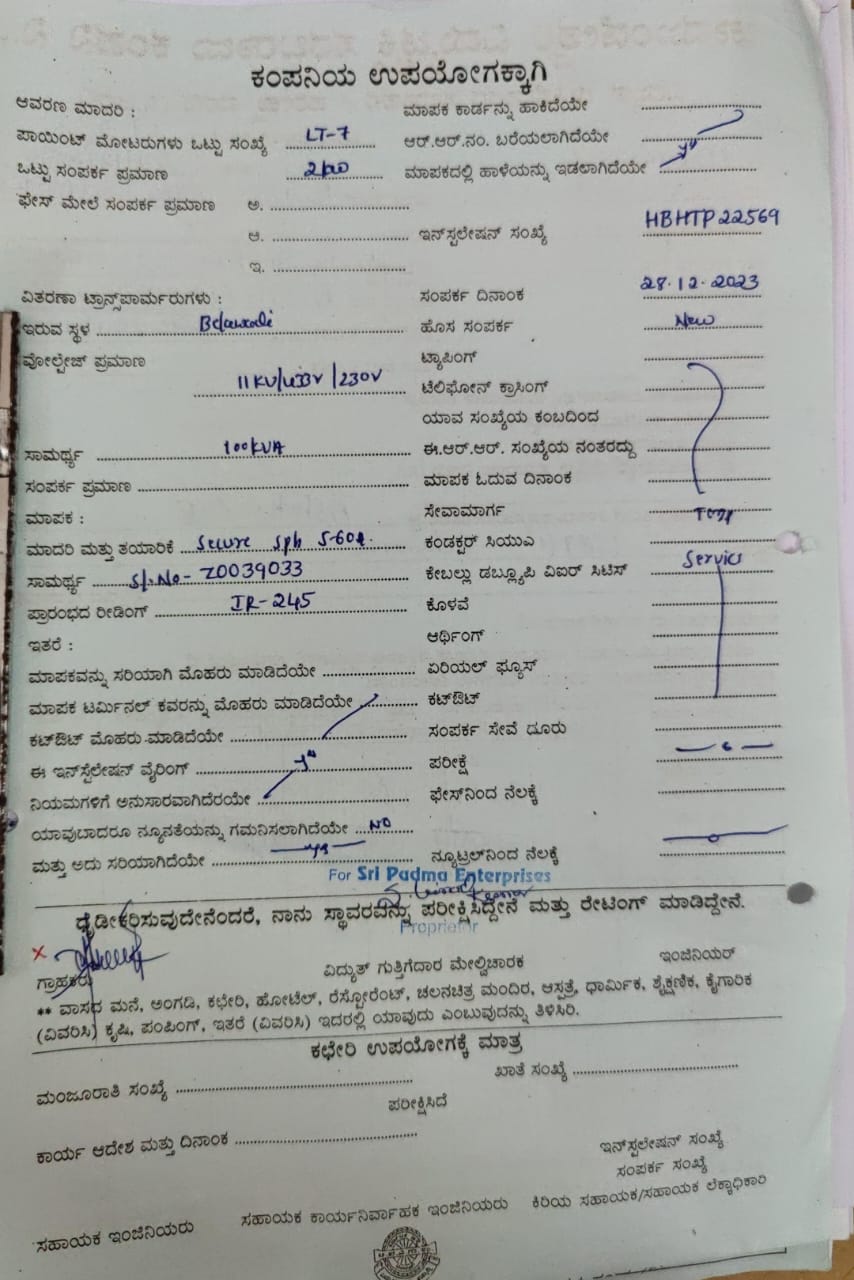 ಕಂಪನಿಯ ಉಪಯೋಗಕ್ಕಾಗಿ
ಆವರಣ ಮಾದರಿ : ಮಾಪಕ ಕಾರ್ಡನ್ನು ಹಾಕಿದೆಯೇ
ಪಾಯಿಂಟ್ ಮೋಟರುಗಳು ಒಟ್ಟು ಸಂಖ್ಯೆ LT-7 ಆರ್.ಆರ್.ನಂ. ಬರೆಯಲಾಗಿದೆಯೇ
ಒಟ್ಟು ಸಂಪರ್ಕ ಪ್ರಮಾಣ ಮಾಪಕದಲ್ಲಿ ಹಾಳೆಯನ್ನು ಇಡಲಾಗಿದೆಯೇ
ಫೇಸ್ ಮೇಲೆ ಸಂಪರ್ಕ ಪ್ರಮಾಣ ಅ.
ಆ. ಇನ್‌ಸ್ಟಲೇಷನ್ ಸಂಖ್ಯೆ HBHTP22569
ಇ.
ವಿತರಣಾ ಟ್ರಾನ್ಸ್‌ಪಾರ್ಮರುಗಳು : ಸಂಪರ್ಕ ದಿನಾಂಕ 28.12.2023
ಇರುವ ಸ್ಥಳ ಹೊಸ ಸಂಪರ್ಕ New
ವೋಲ್ಟೇಜ್ ಪ್ರಮಾಣ ಟ್ಯಾಪಿಂಗ್
11KV/433V/230V ಟೆಲಿಫೋನ್ ಕ್ರಾಸಿಂಗ್
ಯಾವ ಸಂಖ್ಯೆಯ ಕಂಬದಿಂದ
ಸಾಮರ್ಥ್ಯ 100KVA ಈ.ಆರ್.ಆರ್. ಸಂಖ್ಯೆಯ ನಂತರದ್ದು
ಸಂಪರ್ಕ ಪ್ರಮಾಣ ಮಾಪಕ ಓದುವ ದಿನಾಂಕ
ಮಾಪಕ : ಸೇವಾಮಾರ್ಗ Temp
ಮಾದರಿ ಮತ್ತು ತಯಾರಿಕೆ Secure Sph 5-60A. ಕಂಡಕ್ಟರ್ ಸಿಯುಎ
ಸಾಮರ್ಥ್ಯ Sl.No- Z0039033 ಕೇಬಲ್ಲು ಡಬ್ಲ್ಯೂಪಿ ವಿಐರ್ ಸಿಟಿಸ್ Service
ಪ್ರಾರಂಭದ ರೀಡಿಂಗ್ IR-245 ಕೊಳವೆ
ಇತರೆ : ಆರ್ಥಿಂಗ್
ಮಾಪಕವನ್ನು ಸರಿಯಾಗಿ ಮೊಹರು ಮಾಡಿದೆಯೇ ಏರಿಯಲ್ ಫ್ಯೂಸ್
ಮಾಪಕ ಟರ್ಮಿನಲ್ ಕವರನ್ನು ಮೊಹರು ಮಾಡಿದೆಯೇ ಕಟ್‌ಔಟ್
ಕಟ್‌ಔಟ್ ಮೊಹರು ಮಾಡಿದೆಯೇ ಸಂಪರ್ಕ ಸೇವೆ ದೂರು
ಈ ಇನ್‌ಸ್ಟೆಲೇಷನ್ ವೈರಿಂಗ್ ಪರೀಕ್ಷೆ
ನಿಯಮಗಳಿಗೆ ಅನುಸಾರವಾಗಿದೆರಯೇ ಫೇಸ್‌ನಿಂದ ನೆಲಕ್ಕೆ
ಯಾವುಬಾದರೂ ನ್ಯೂನತೆಯನ್ನು ಗಮನಿಸಲಾಗಿದೆಯೇ NO
ಮತ್ತು ಅದು ಸರಿಯಾಗಿದೆಯೇ yes ನ್ಯೂಟ್ರಲ್‌ನಿಂದ ನೆಲಕ್ಕೆ
For Sri Padma Enterprises
ಧೃಡೀಕರಿಸುವುದೇನೆಂದರೆ, ನಾನು ಸ್ಥಾವರವನ್ನು ಪರೀಕ್ಷಿಸಿದ್ದೇನೆ ಮತ್ತು ರೇಟಿಂಗ್ ಮಾಡಿದ್ದೇನೆ.
Proprietor
ಗ್ರಾಹಕರು ವಿದ್ಯುತ್ ಗುತ್ತಿಗೆದಾರ ಮೇಲ್ವಿಚಾರಕ ಇಂಜಿನಿಯರ್
** ವಾಸದ ಮನೆ, ಅಂಗಡಿ, ಕಛೇರಿ, ಹೋಟೆಲ್, ರೆಸ್ಟೋರೆಂಟ್, ಚಲನಚಿತ್ರ ಮಂದಿರ, ಆಸ್ಪತ್ರೆ, ಧಾರ್ಮಿಕ, ಶೈಕ್ಷಣಿಕ, ಕೈಗಾರಿಕ
(ವಿವರಿಸಿ) ಕೃಷಿ, ಪಂಪಿಂಗ್, ಇತರೆ (ವಿವರಿಸಿ) ಇದರಲ್ಲಿ ಯಾವುದು ಎಂಬುವುದನ್ನು ತಿಳಿಸಿರಿ.
ಕಛೇರಿ ಉಪಯೋಗಕ್ಕೆ ಮಾತ್ರ
ಮಂಜೂರಾತಿ ಸಂಖ್ಯೆ ಖಾತೆ ಸಂಖ್ಯೆ
ಪರೀಕ್ಷಿಸಿದೆ
ಕಾರ್ಯ ಆದೇಶ ಮತ್ತು ದಿನಾಂಕ
ಇನ್‌ಸ್ಟಲೇಷನ್ ಸಂಖ್ಯೆ
ಸಂಪರ್ಕ ಸಂಖ್ಯೆ
ಸಹಾಯಕ ಇಂಜಿನಿಯರು ಸಹಾಯಕ ಕಾರ್ಯನಿರ್ವಾಹಕ ಇಂಜಿನಿಯರು ಕಿರಿಯ ಸಹಾಯಕ/ಸಹಾಯಕ ಲೆಕ್ಕಾಧಿಕಾರಿ